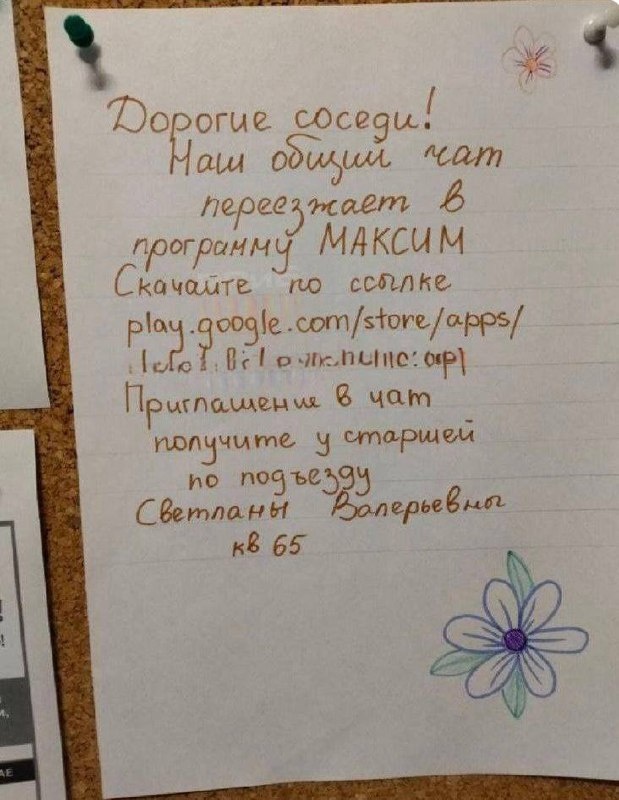 Дорогие соседи!
Наш общий чат
переезжает в
программу МАКСИМ
Скачайте по ссылке
play.google.com/store/apps/
Приглашение в чат
получите у старшей
по подъезду
Светланы Валерьевны
кв 65